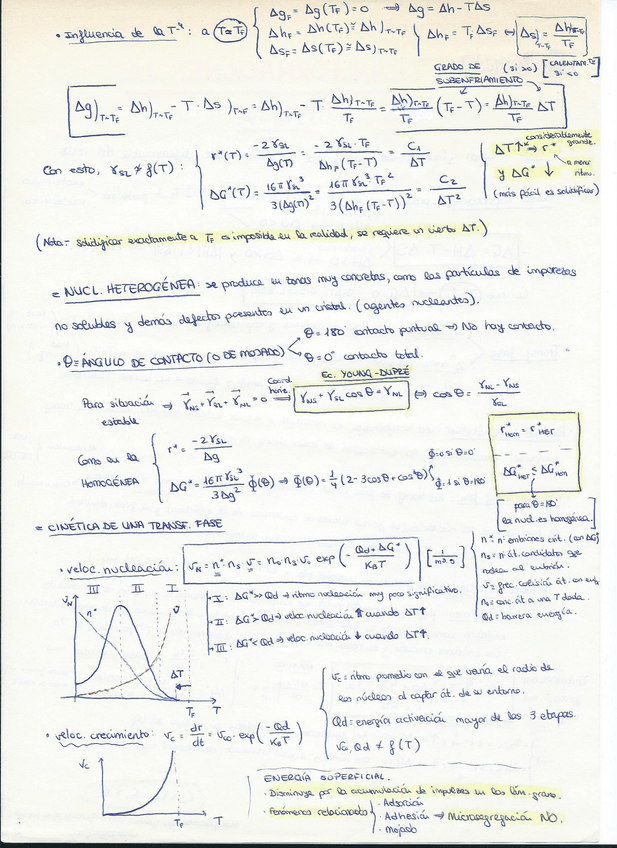 · Influencia de la Tª: a T≈T_F { Δg_F = Δg(T_F) = 0 ⇒ Δg = Δh - TΔs
Δh_F = Δh(T_F) ≅ Δh)_{T~T_F}
Δs_F = Δs(T_F) ≅ Δs)_{T~T_F} { Δh_F = T_F Δs_F ⇔ Δs)_{T~T_F} = Δh)_{T~T_F} / T_F
GRADO DE SUBENFRIAMIENTO (si >0) [CALENTAM. si <0
Δg)_{T~T_F} = Δh)_{T~T_F} - T·Δs)_{T~T_F} = Δh)_{T~T_F} - T· Δh)_{T~T_F} / T_F = Δh)_{T~T_F} / T_F (T_F - T) = Δh)_{T~T_F} / T_F ΔT
Con esto, γ_SL ≠ f(T) : { r*(T) = -2γ_SL / Δg(T) = -2γ_SL·T_F / Δh_F(T_F-T) = C₁ / ΔT
ΔG*(T) = 16πγ_SL³ / 3(Δg(T))² = 16πγ_SL³ T_F² / 3(Δh_F(T_F-T))² = C₂ / ΔT²
considerablemente grande.
ΔT↑ ⇒ r*
a menor ritmo.
y ΔG* ↓
(más fácil es solidificar)
(Nota.- solidificar exactamente a T_F es imposible en la realidad, se requiere un cierto ΔT.)
= NUCL. HETEROGÉNEA: se produce en zonas muy concretas, como las partículas de impurezas
no solubles y demás defectos presentes en un cristal. (agentes nucleantes).
· θ = ÁNGULO DE CONTACTO (O DE MOJADO) θ = 180° contacto puntual ⇒ No hay contacto.
θ = 0° contacto total.
Ec. YOUNG-DUPRÉ
Para situación estable ⇒ γ_NS + γ_SL + γ_NL = 0 ⇒ Coord. horiz. γ_NS + γ_SL cos θ = γ_NL ⇔ cos θ = γ_NL - γ_NS / γ_SL
Como en la HOMOGÉNEA { r* = -2γ_SL / Δg
ΔG* = 16πγ_SL³ / 3Δg² Φ(θ) ⇒ Φ(θ) = 1/4 (2 - 3cosθ + cos³θ)
Φ=0 si θ=0°
Φ=1 si θ=180°
r*_HOM = r*_HET
ΔG*_HET ≤ ΔG*_HOM
para θ = 180° la nucl. es homogénea.
= CINÉTICA DE UNA TRANSF. FASE
· veloc. nucleación: v_N = n* n_s ν = n₀ n_s ν₀ exp(- Qd + ΔG* / K_B T) [1 / m³·s]
n* = nº embriones crít. (con ΔG*)
n_s = nº át. candidatos que rodea al embrión.
ν = frec. colisión át. con emb.
n₀ = conc. át. a una T dada.
Qd = barrera energía.
III II I
v_N n* ν
ΔT
T_F T
· I : ΔG* >> Qd → ritmo nucleación muy poco significativo.
· II : ΔG* > Qd → veloc nucleación ⇑ cuando ΔT↑
· III : ΔG* < Qd → veloc nucleación ↓ cuando ΔT↑.
· veloc. crecimiento: v_C = dr / dt = v_C0 · exp(-Qd / K_B T)
v_C = ritmo promedio con el que varía el radio de
los núcleos al captar át. de su entorno.
Qd = energía activación mayor de las 3 etapas.
v_C0, Qd ≠ f(T)
v_C
T_F T
ENERGÍA SUPERFICIAL.
· Disminuye por la acumulación de impurezas en los lím. grano.
· Fenómenos relacionados { · Adsorción
· Adhesión → Microsegregación NO.
· Mojado